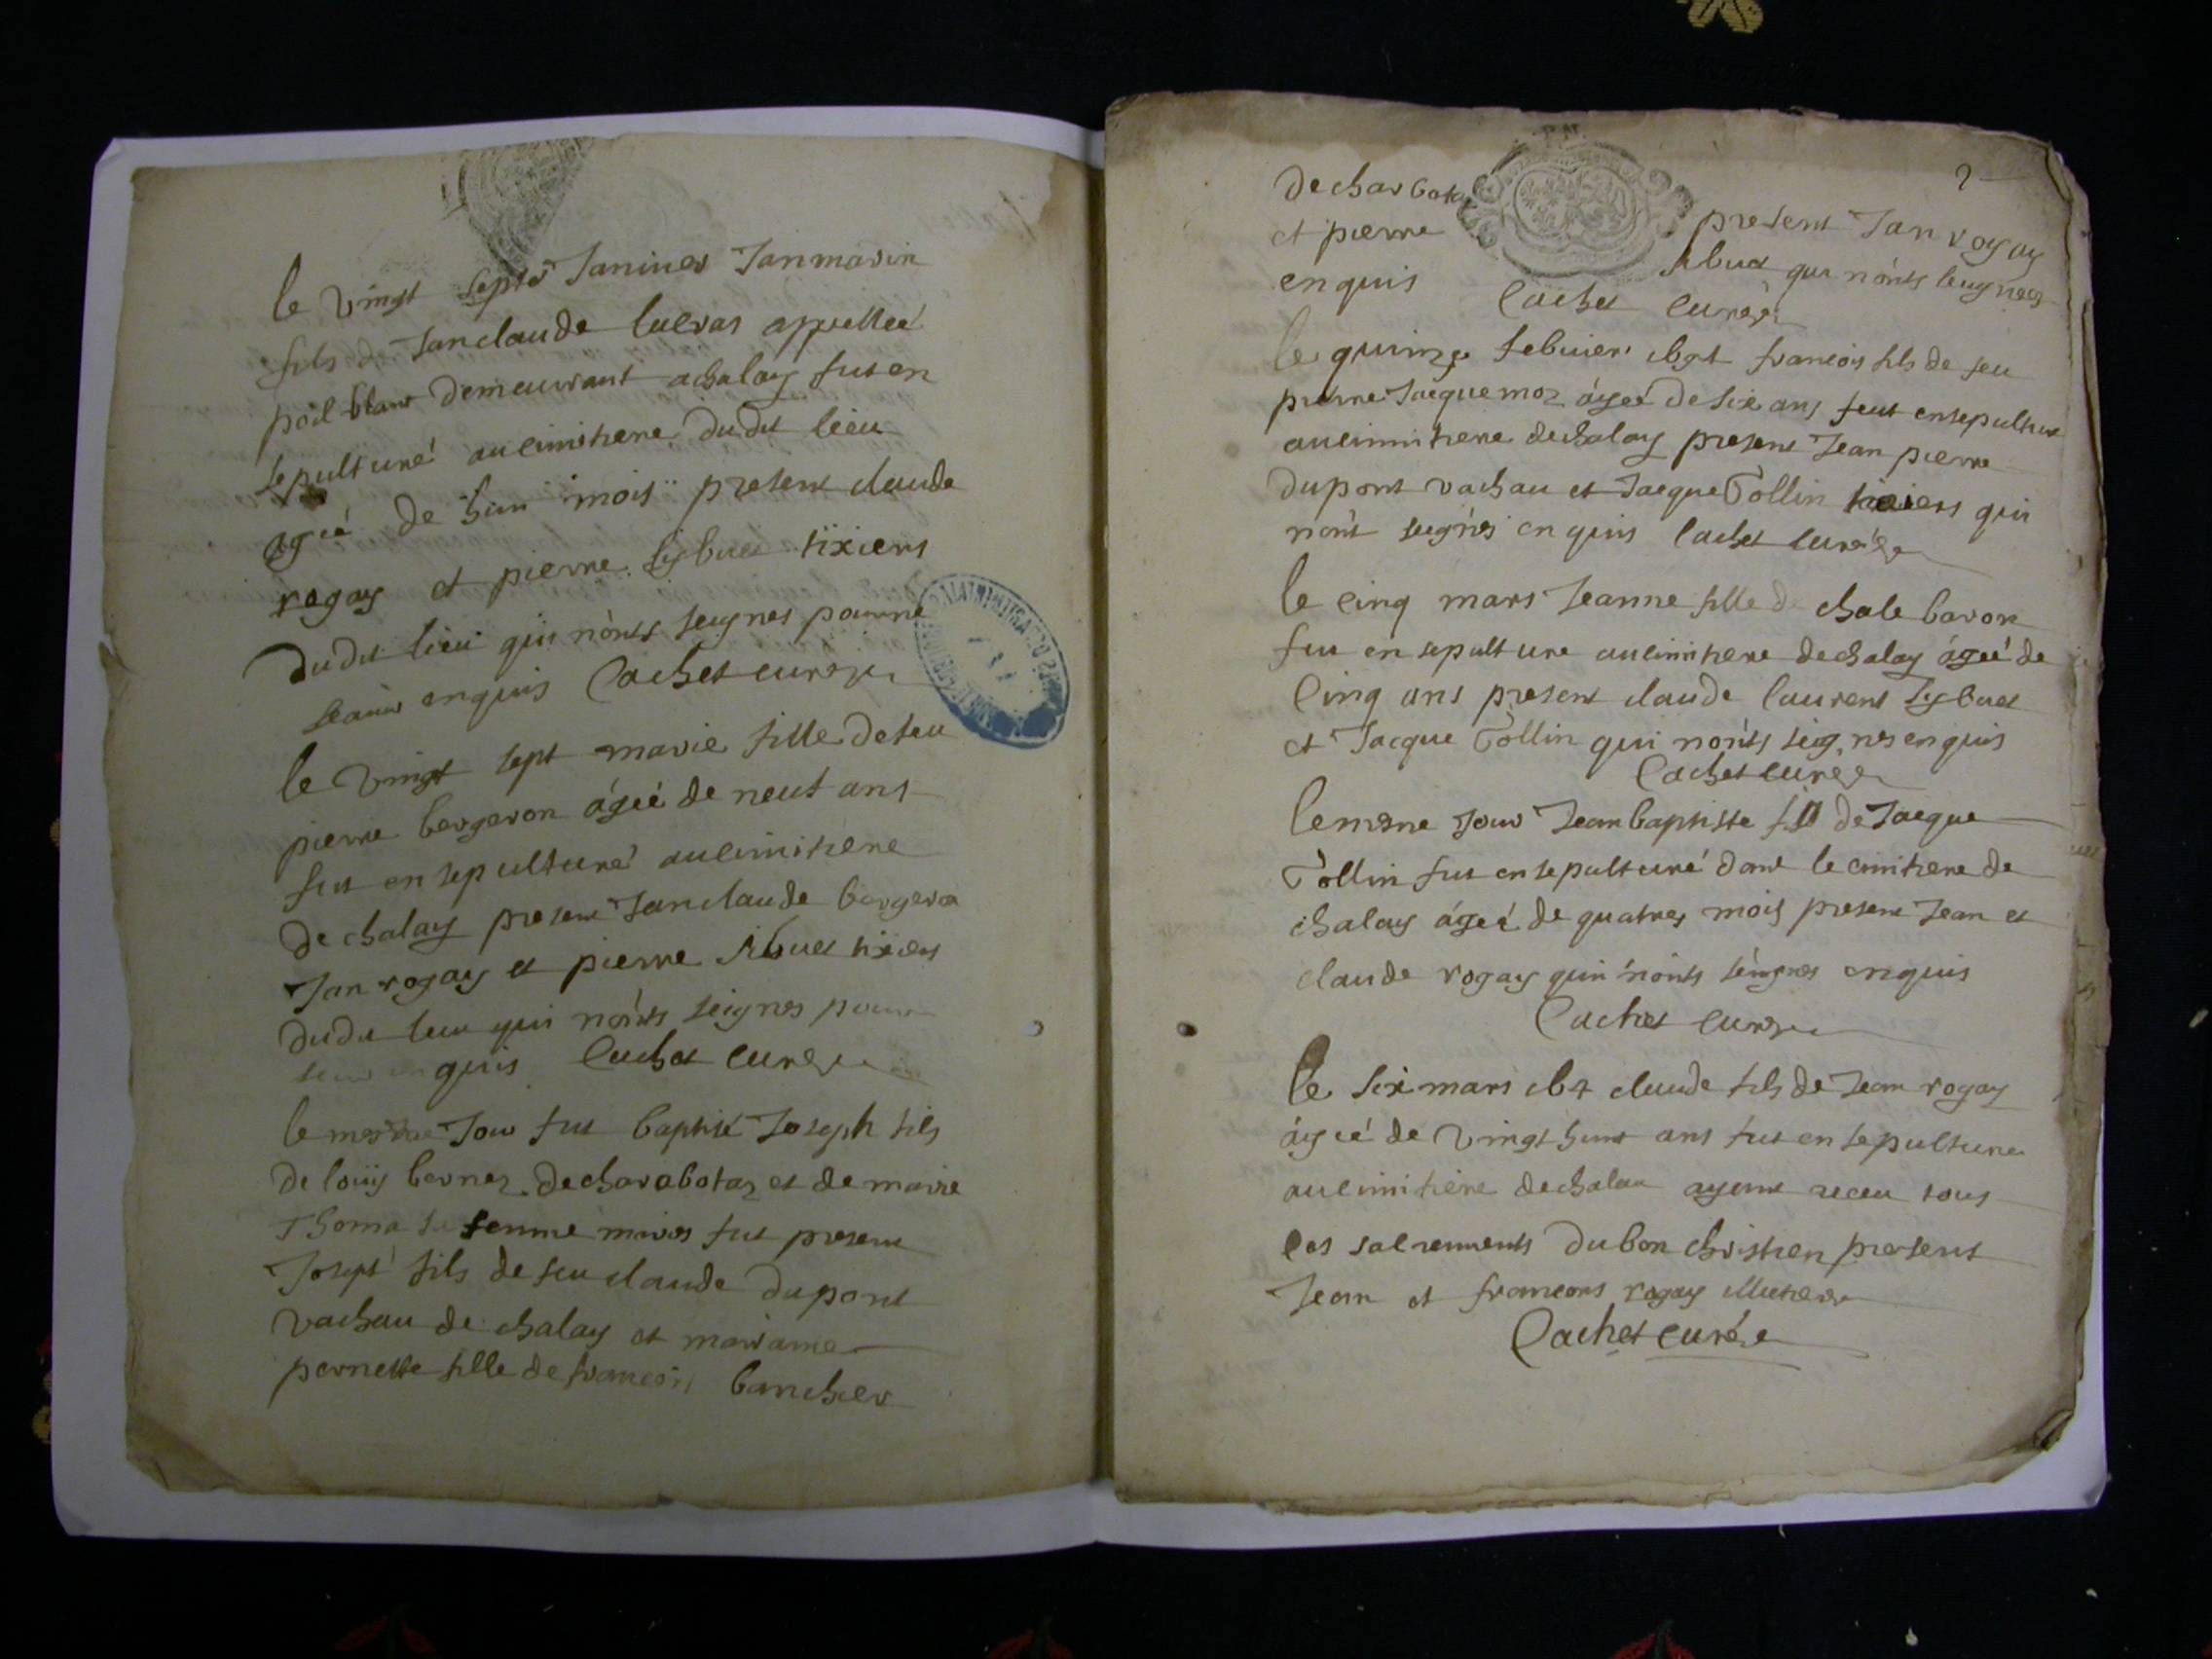 le vingt sept Janiuer Jan marin
fils de Jan claude lueras appellée
poil blanc demeurant a chalay fut en
sepulturé au cimitiere du dit lieu
agée de huit mois present claude
rogay et pierre sybuet tixiers
du dit lieu qui nònts seignes pour ne
scauoir enquis Cachet curé
le vingt sept marie fille de feu
pierre bergeron ágée de neuf ans
fut ensepulturé au cimitiere
de chalay present Jan claude bergeron
Jan rogay et pierre sibuet tixiers
du dit lieu qui nónts seignes pour
enquis Cachet curé
le mesme Jour fut baptisé Joseph fils
de louÿ bernez de charabotaz et de marie
Thoma sa femme fut present
Josept fils de feu claude dupont
vachau de chalay et maraine
pernette fille de francois bancher
2
de charbota
et pierre present Jan rogay
enquis sibuet qui nónts seugnees
Cachet curé
le quinze febuier francois fils de feu
pierre Jacquemoz ágeé de six ans feut ensepulturé
au cimitiere de chalay present Jean pierre
dupont vachau et Jacque Tollin qui
nònt seignés enquis Cachet curé
le cinq mars Jeanne fille de baron
fut ensepulture au cimitiere de chalay ágeé de
Cinq ans present claude laurent sybuet
et Jacque Tollin qui nónts seignes enquis
Cachet curé
le mesme Jour Jean baptiste fils de Jacque
Tollin fut ensepulturé dans le cimitiere de
chalay ágeé de quatres mois present Jean et
claude rogay qui nónts séignes enquis
Cachet curé
le six mars claude fils de Jean rogay
ágeé de vingt huit ans fut ensepulture
au cimitiere de chalay ayant receu tous
les sacrements du bon christien present
Jean et francois rogay
Cachet curé